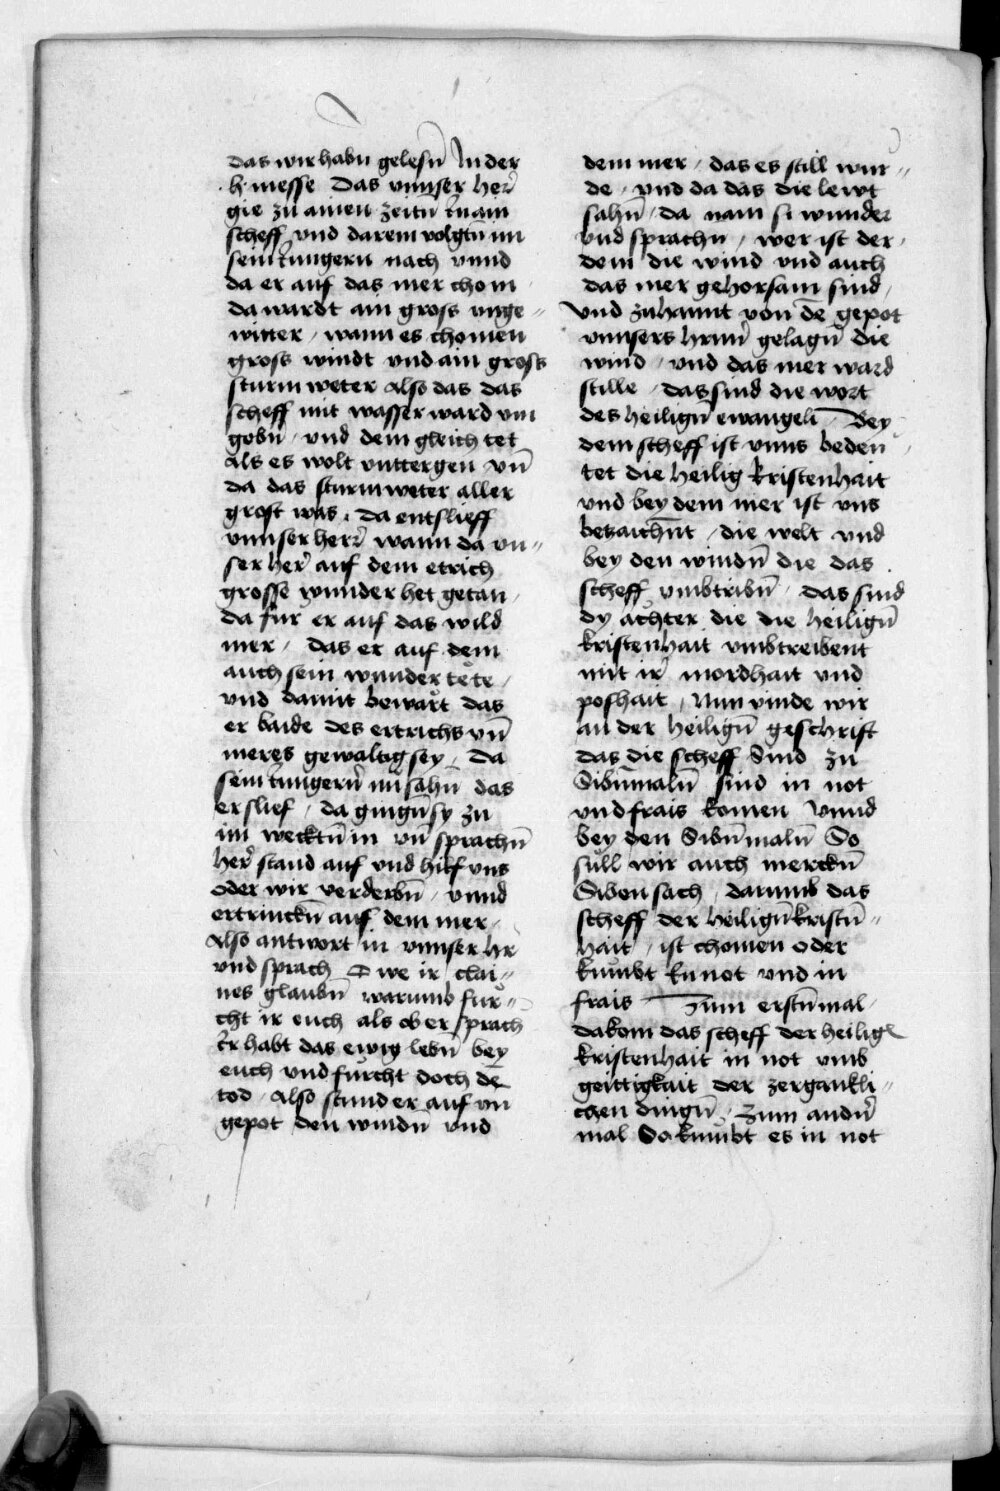 das wir habn gelesn̄ In der
h messe Das vnnser her̄
gie zu ainen zeitn̄ In ain
scheff vnd darein volgtn̄ im
sein Iungern nach vnnd
da er auf das mer chom
da wardt ain gross vnge=
witter / wann es chomen
gross windt vnd ain gross
sturm weter Also das das
scheff mit wasser ward vm
gebn̄ / vnd dem gleich tet
als es wolt vnttergen vn̄
da das sturmweter aller
grost was / da entslieff
vnnser herr̄ wann da vn=
ser her̄ auf dem etrich
grosse wunder het getan /
da fur er auf das wild
mer / das er auf dem
auch sein wunder tete /
vnd damit bewart das
er baide des ertrichs vn̄
meres gewaltig sey / Da
sein Iungern̄ im sahn̄ das
er slief / da gingn̄ sy zu
im wecktn̄ in vn̄ sprachn̄
her̄ stand auf vnd hilf vns
oder wir verderbn̄ / vnnd
ertrinckn̄ auf dem mer /
Also antwort in vnnser hr
vnd sprach O we ir clai=
nes glaubn̄ warumb fur=
cht ir euch als ob er sprach
Ir habt das ewig lebn̄ bey
euch vnd furcht doch dē
tod / Also stund er auf vn̄
gepot den windn̄ vnd
dem mer / das es still wur=
de / vnd da das die lewt
sahn̄ / da nam si wunder
vnd sprachn̄ / wer ist der /
dem die wind vnd auch
das mer gehorsam sind /
Vnd zuhannt von dē gepot
vnnsers hrnn̄ gelagn̄ die
wind / vnd das mer ward
stille / das sind die wort
des heilign̄ ewangeli / Bey
dem scheff ist vnns bedeu
tet die heilig kristenhait
vnd bey dem mer ist vns
betzaichēnt / die welt vnd
bey den windn̄ die das
scheff vmbtribn̄ / das sind
dy ächter die die heilign̄
kristenhait vmbtreibent
mit ir̄ mordhait vnd
poshait / Nun vinde wir
an der heilign̄ geschrift
das die scheff Sind zu
Sibn̄maln̄ sind in not
vnd frais komen vnnd
bey den Sibn̄maln̄ So
süll wir auch merckn̄
Siben sach / darumb das
scheff der heilign̄ kristn̄=
hait / ist chomen oder
kumbt In not vnd in
frais Zum erstn̄ mal /
da kom das scheff der heilign̄
kristenhait in not vmb
geittigkait der zergankli=
chen dingn̄ / Zum andn̄
mal So kumbt es in not